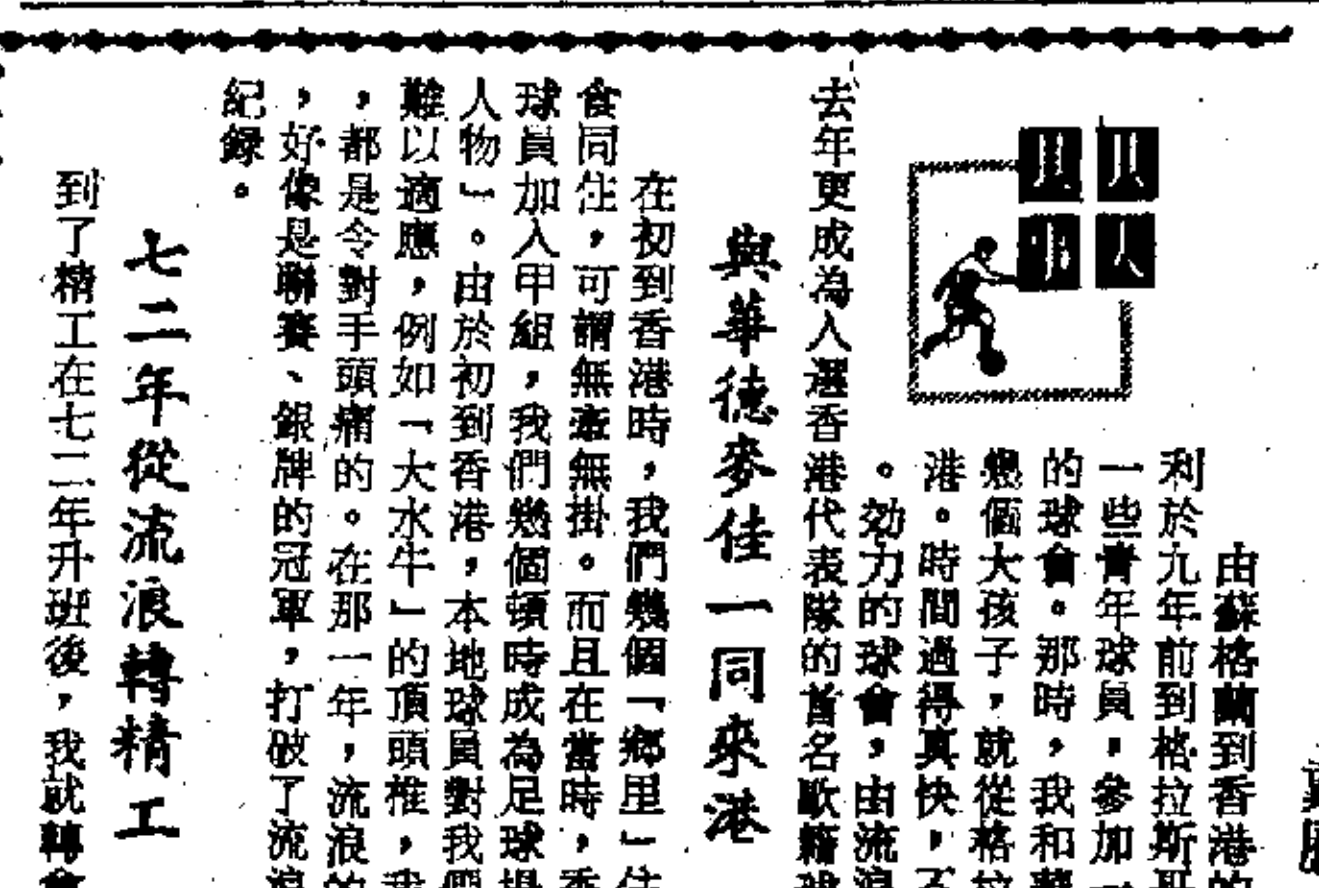 真人
真事
由蘇格蘭到香港的
利於九年前到格拉斯哥
一些青年球員，參加一
的球會。那時，我和華
幾個大孩子，就從格拉
港。時間過得真快，不
。効力的球會，由流浪
去年更成為入選香港代表隊的首名歐籍球
與華德麥佳一同來港
在初到香港時，我們幾個「鄉里」住
食同住，可謂無牽無掛。而且在當時，香
球員加入甲組，我們幾個頓時成為足球場
人物」。由於初到香港，本地球員對我們
難以適應，例如「大水牛」的頂頭槌，我
，都是令對手頭痛的。在那一年，流浪的
，好像是聯賽、銀牌的冠軍，打破了流浪
紀錄。
七二年從流浪轉精工
到了精工在七二年升班後，我就轉會